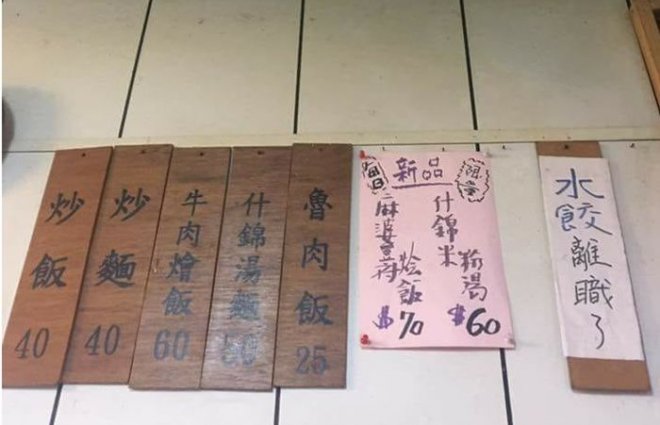 炒飯 40
炒麵 40
牛肉燴飯 60
什錦湯麵 50
魯肉飯 25
每日
新品
限量
什錦米粉湯 $60
麻婆豆腐燴飯 $70
水餃離職了